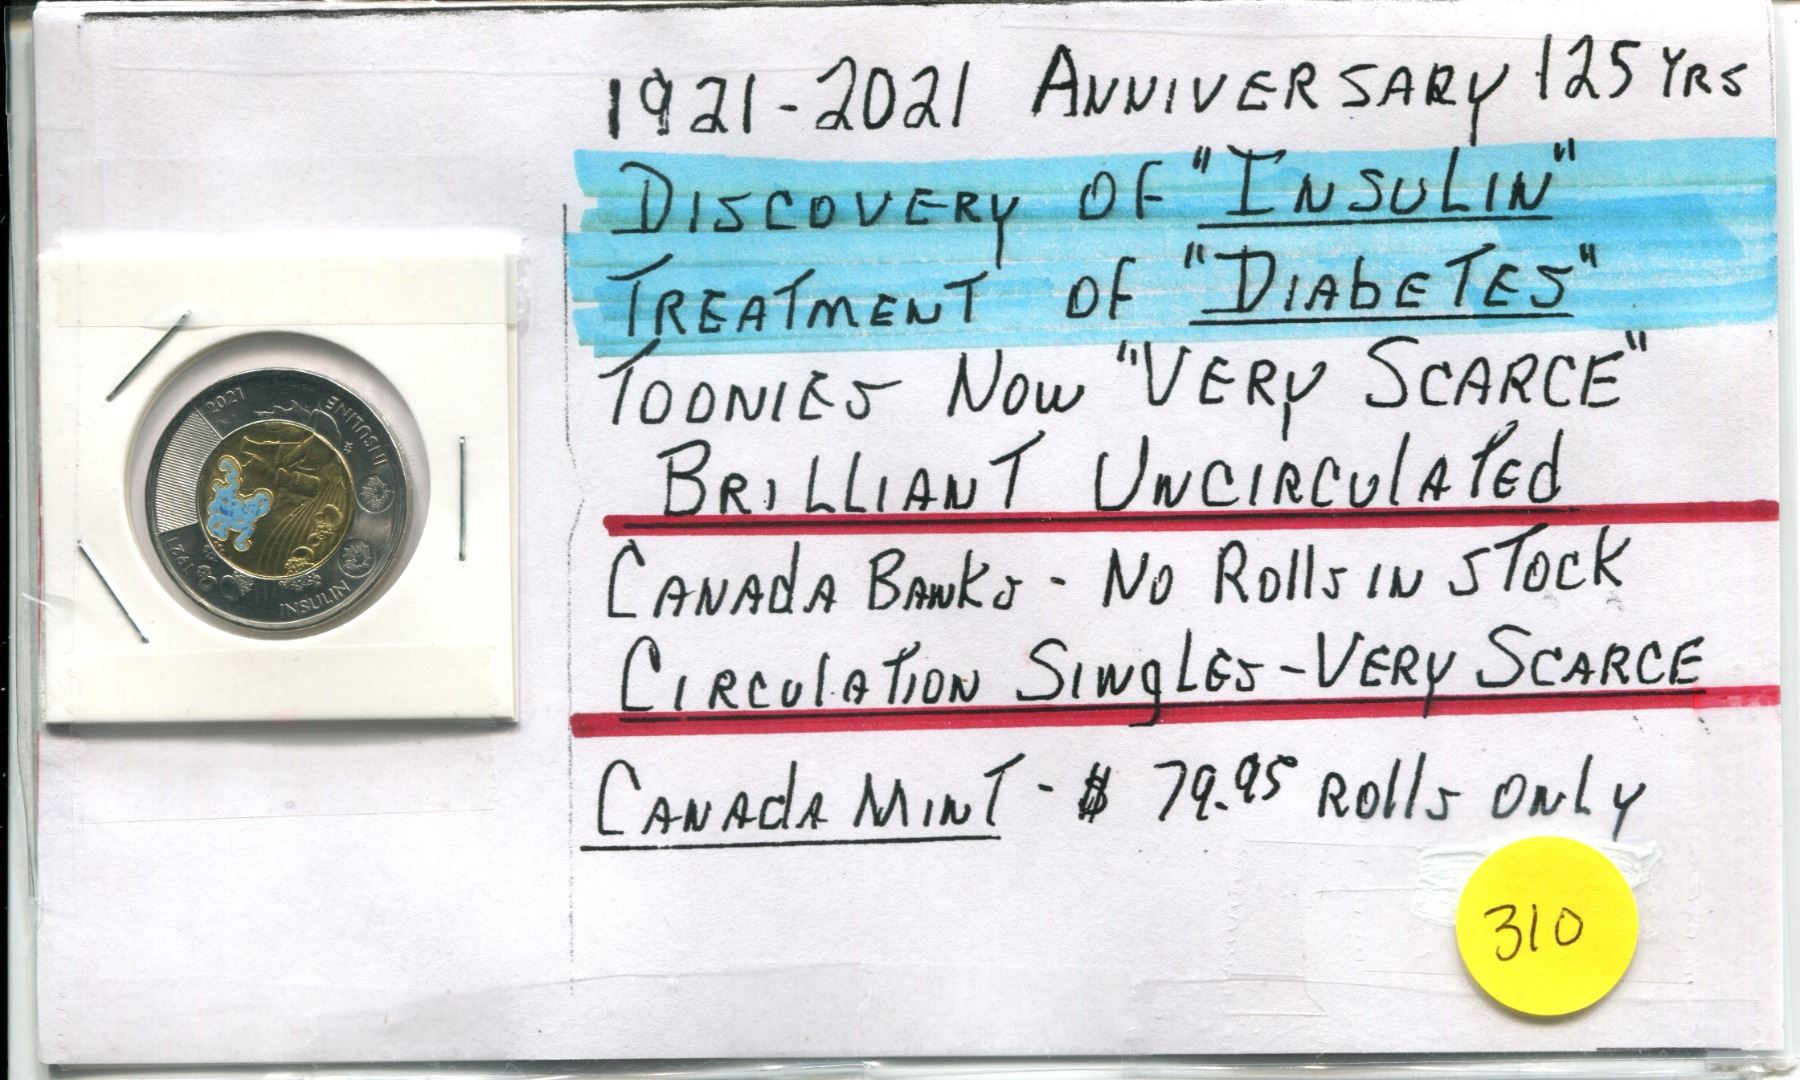 1921-2021 ANNIVERSARY 125 YRS
DISCOVERY OF "INSULIN"
TREATMENT OF "DIABETES"
TOONIES NOW "VERY SCARCE"
BRILLIANT UNCIRCULATED
CANADA BANKS - NO ROLLS IN STOCK
CIRCULATION SINGLES - VERY SCARCE
CANADA MINT - $ 79.95 ROLLS ONLY
310
2021
INSULINE
1921
INSULIN